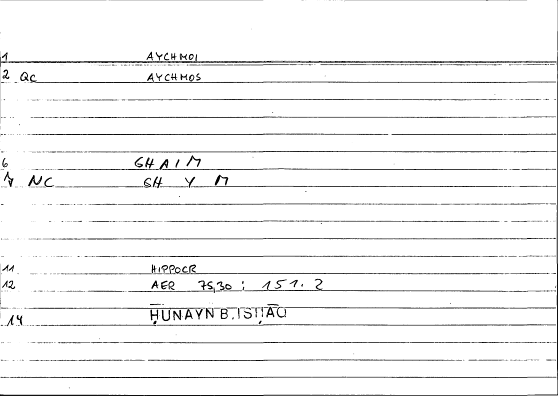 1 AYCHMOI
2 QC AYCHMOS
6 GHAIM
7 NC GH Y M
11 HIPPOCR
12 AER 75,30 : 151.2
14 ḤUNAYN B. ISḤĀQ